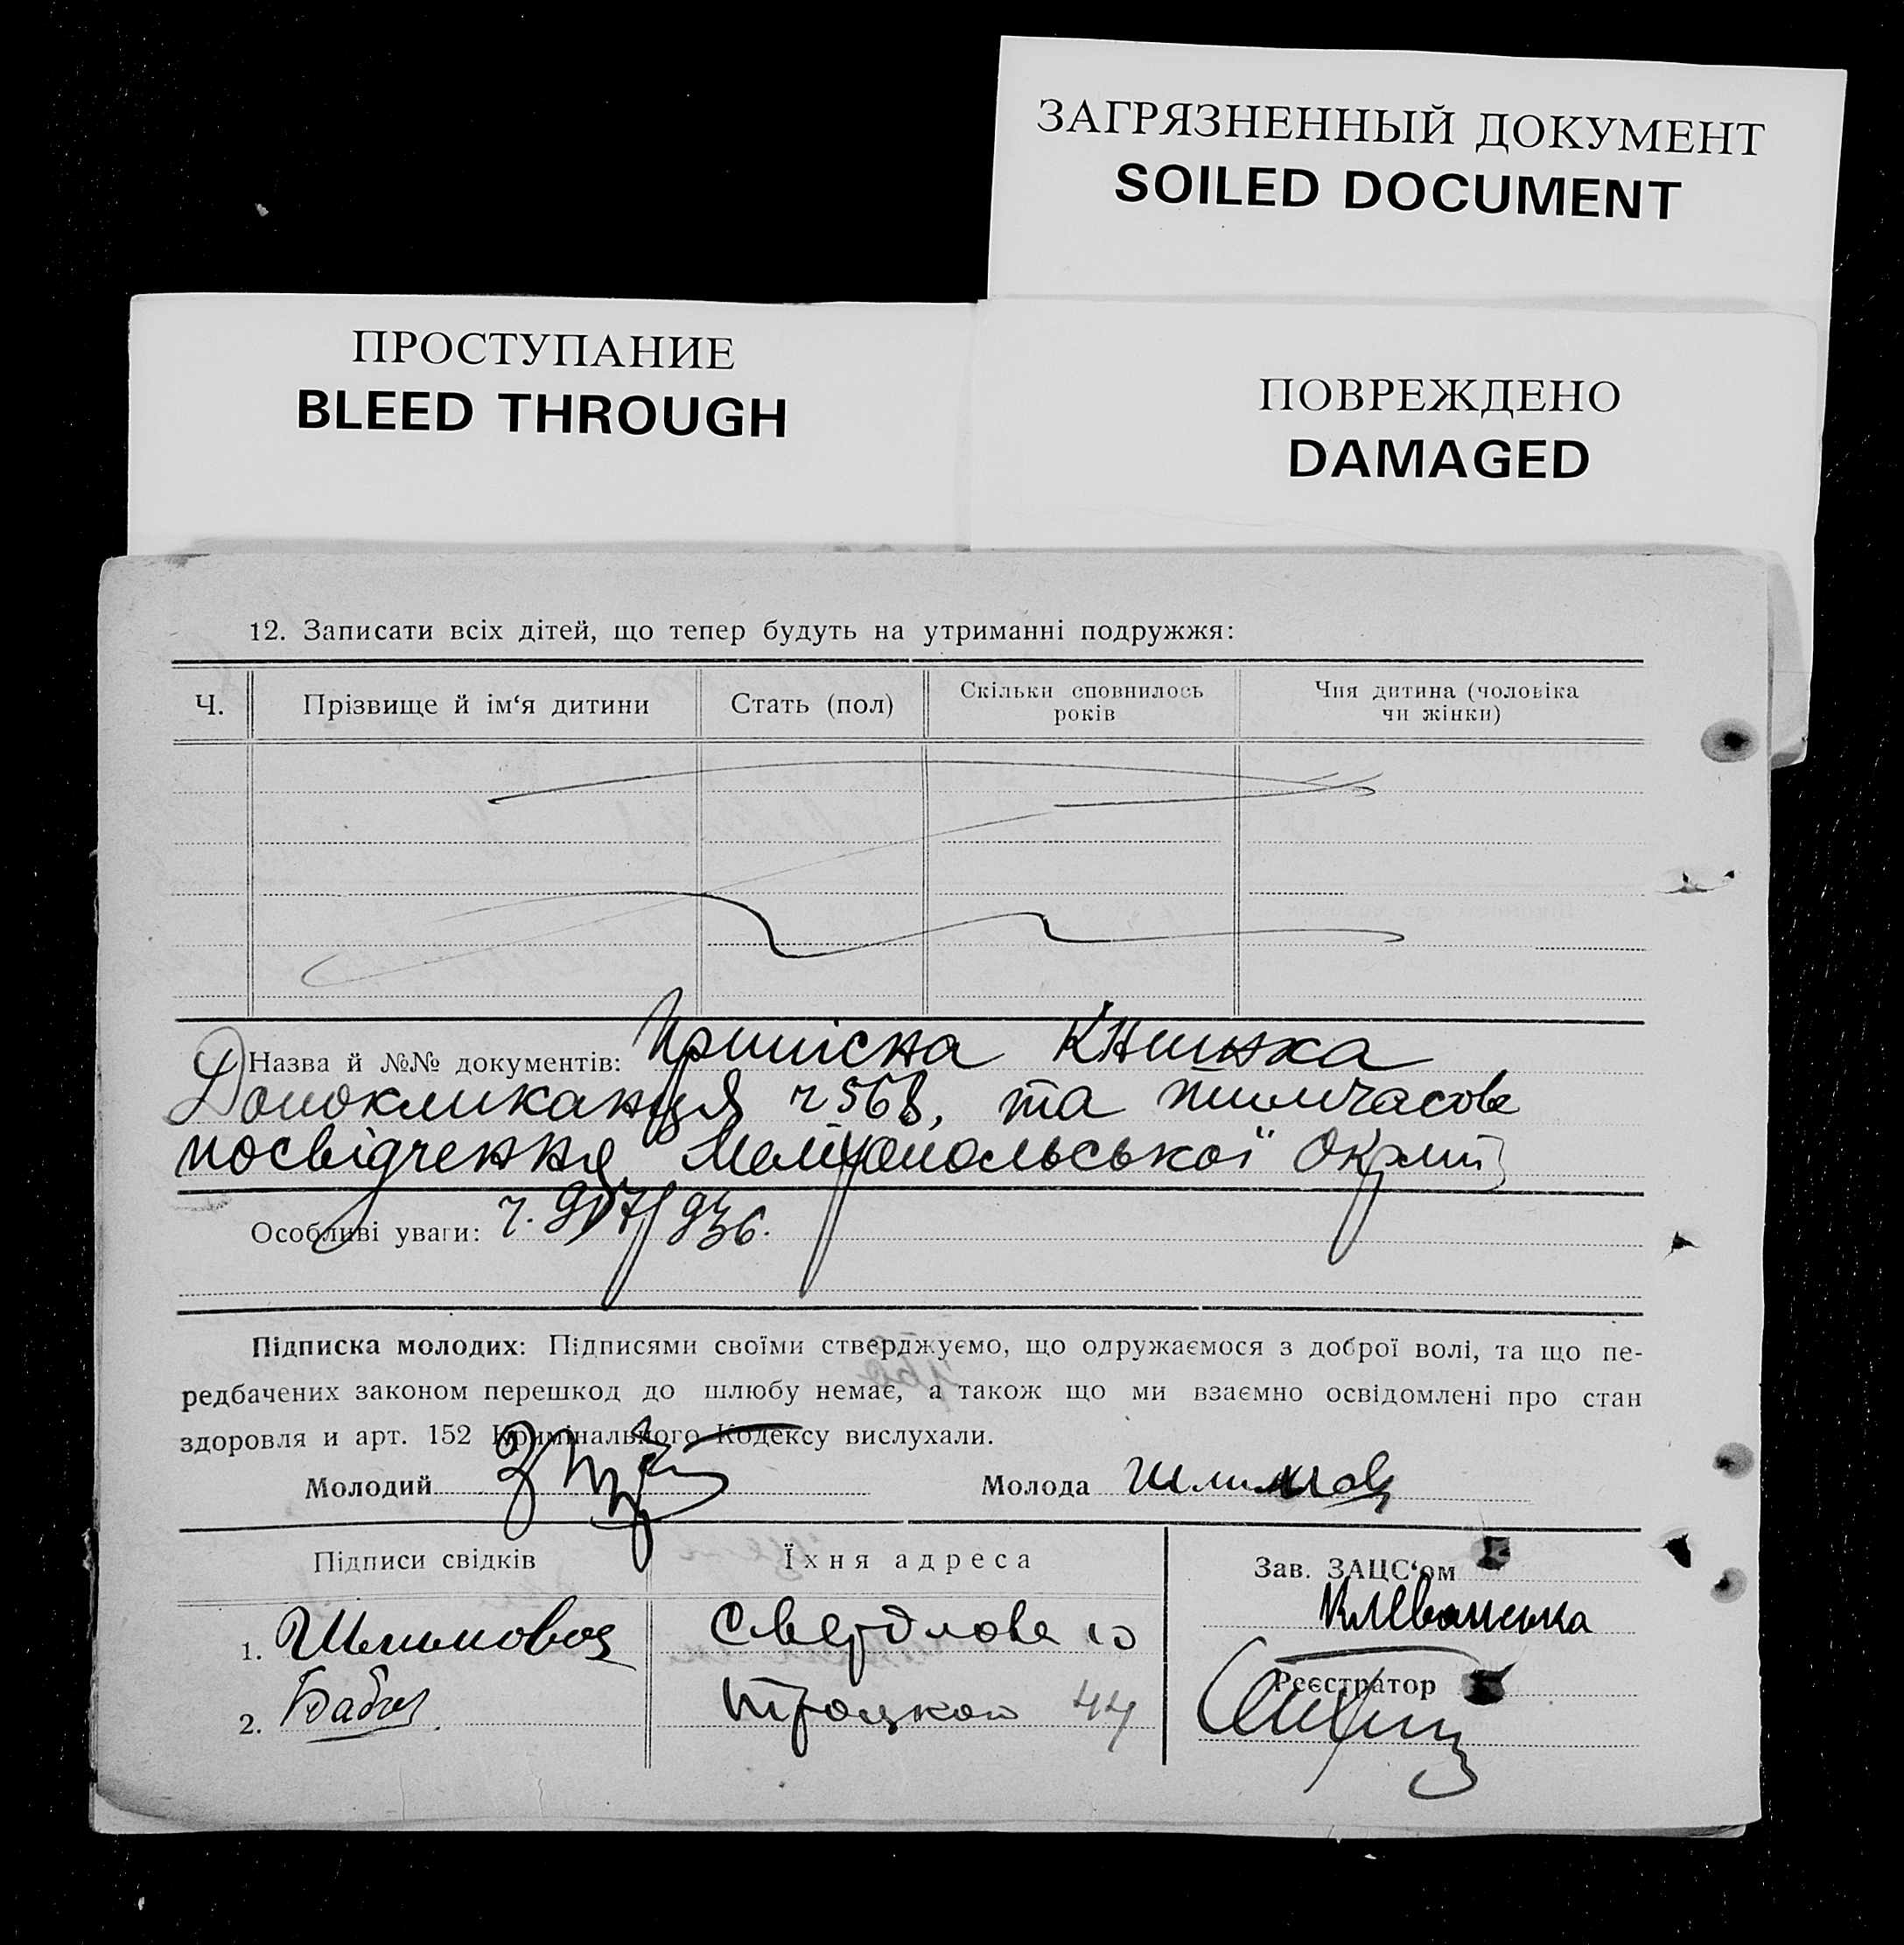 ЗАГРЯЗНЕННЫЙ ДОКУМЕНТ
SOILED DOCUMENT
ПРОСТУПАНИЕ
BLEED THROUGH
ПОВРЕЖДЕНО
DAMAGED
12. Записати всіх дітей, що тепер будуть на утриманні подружжя:
Ч. Прізвище й ім‘я дитини Стать (пол) Скільки сповнилось років Чия дитина (чоловіка чи жінки)
Назва й №№ документів: Приписна Книжка
Допокликанця ч 568, та тимчасове
посвідчення Мелітопольської Окрмі
Особливі уваги: ч. 907/936.
Підписка молодих: Підписями своїми стверджуємо, що одружаємося з доброї волі, та що пе-
редбачених законом перешкод до шлюбу немає, а також що ми взаємно освідомлені про стан
здоровля и арт. 152 Кримінального Кодексу вислухали.
Молодий Молода
Підписи свідків Їхня адреса Зав. ЗАЦС‘ом
1. Свердлова 10
Реєстратор
2. Троцкого 44